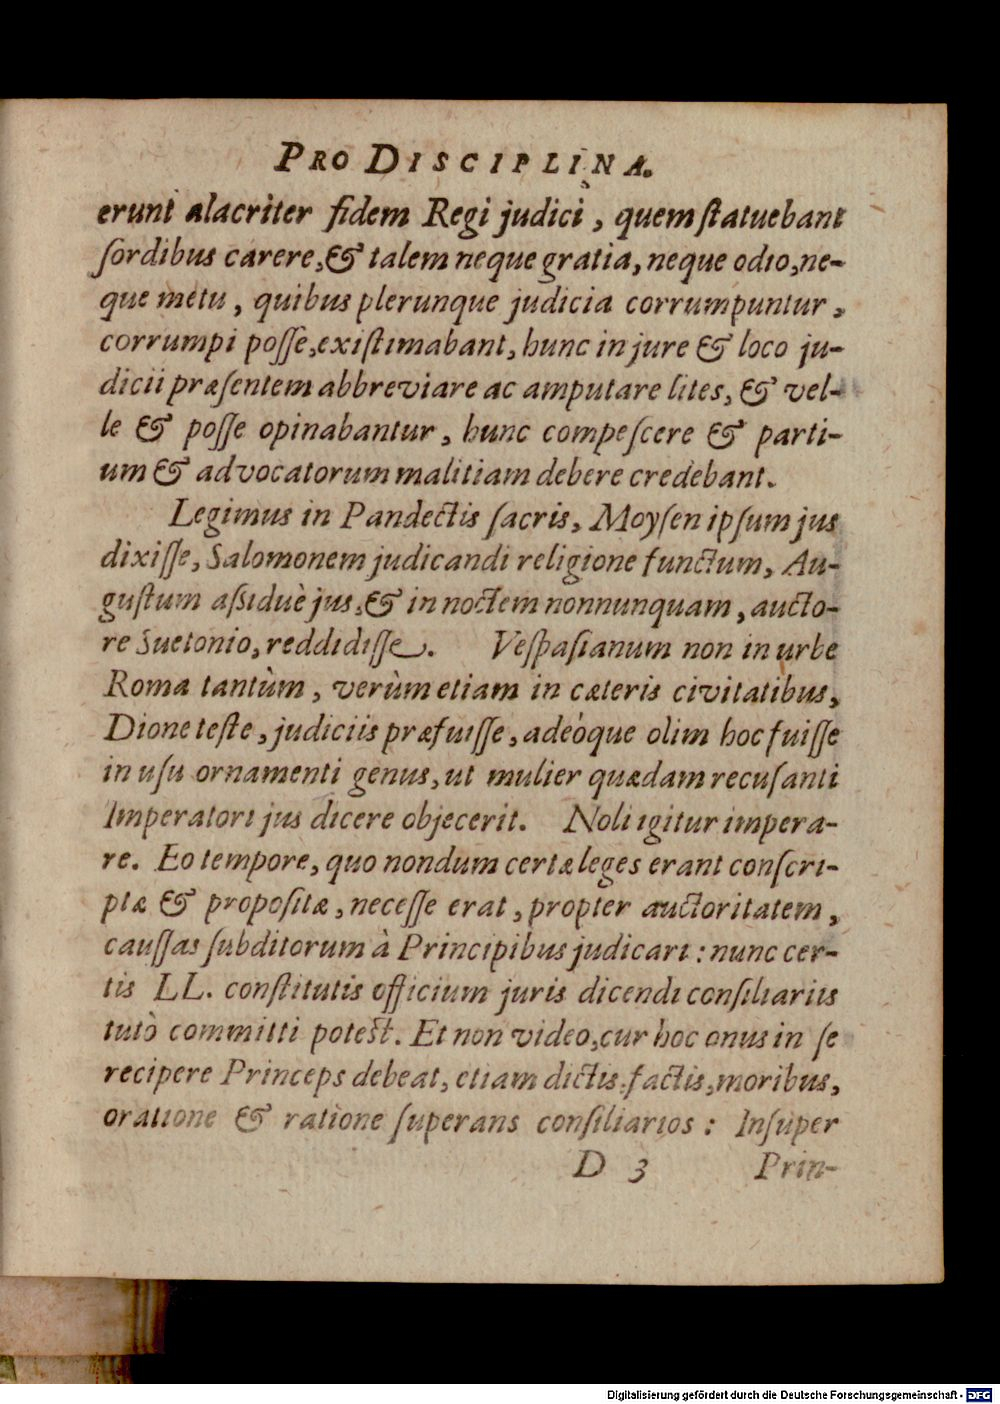 PRO DISCIPLINA.
erunt alacriter fidem Regi judici, quem ſtatuebant
ſordibus carere, & talem neque gratia, neque odio, ne-
que metu, quibus plerunque judicia corrumpuntur,
corrumpi poſſe, exiſtimabant, hunc in jure & loco ju-
dicii præſentem abbreviare ac amputare lites, & vel-
le & poſſe opinabantur, hunc compeſcere & parti-
um & advocatorum malitiam debere credebant.
Legimus in Pandectis ſacris, Moyſen ipſum jus
dixiſſe, Salomonem judicandi religione functum, Au-
guſtum aſsiduè jus, & in noctem nonnunquam, aucto-
re Suetonio, reddidiſſe. Veſpaſianum non in urbe
Roma tantùm, verùm etiam in cæteris civitatibus,
Dione teſte, judiciis præfuiſſe, adeòque olim hoc fuiſſe
in uſu ornamenti genus, ut mulier quædam recuſanti
Imperatori jus dicere objecerit. Noli igitur impera-
re. Eo tempore, quo nondum certæ leges erant conſcri-
ptæ & propoſitæ, neceſſe erat, propter auctoritatem,
cauſſas ſubditorum à Principibus judicari: nunc cer-
tis LL. conſtitutis officium juris dicendi conſiliariis
tutò committi poteſt. Et non video, cur hoc onus in ſe
recipere Princeps debeat, etiam dictis, factis, moribus,
oratione & ratione ſuperans conſiliarios: Inſuper
D 3 Prin-
Digitalisierung gefördert durch die Deutsche Forschungsgemeinschaft - DFG